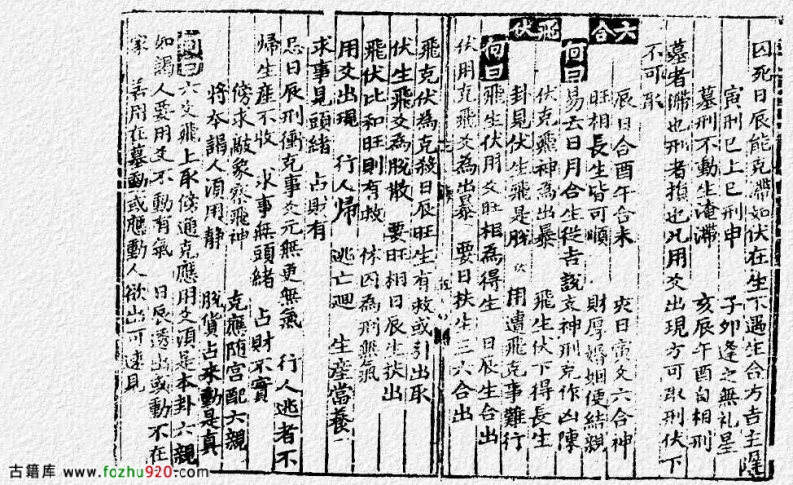 囚死日辰能克帶如伏在生下遇生合方吉主
寅刑巳上巳刑申 子卯逢之無礼星
墓刑不動生淹滯 亥辰午酉自相刑
墓者滯也刑者損也凡用爻出現方可取刑伏下
不可取
六合
辰日合酉午合未 亥日寅爻六合神
旺相長生皆可順 財厚婚姻便結親
何曰 易云日月合生從吉說 支神刑克作凶陳
飛伏
伏克飛神為出暴 飛生伏下得長生
卦見伏生飛是脫 用遭飛克事難行
何曰 飛生伏用爻旺相為得生 日辰生合出
伏用克飛爻為出暴 要日扶生三六合出
飛克伏為克殺日辰旺生有救或引出取
伏生飛爻為脫散 要旺相日辰生扶出
飛伏比和旺則有救 休囚為刑無氣
用爻出現 行人歸 逃亡廻 生產當養
求事見頭緒 占財有
忌日辰刑衝克事爻元無更無氣 行人逃者不
歸生產不收 求事無頭緒 占財不實
傍求敲象察飛神 克應随宫配六親
將本謁人須用静 脫貨占來動是真
何曰 六爻飛上取傍通克應用爻須是本卦六親
如謁人要用爻不動有氣 日辰透出或動不在
家 若用在墓動或應動人欲出可速見
古籍库 www.fozhu920.com